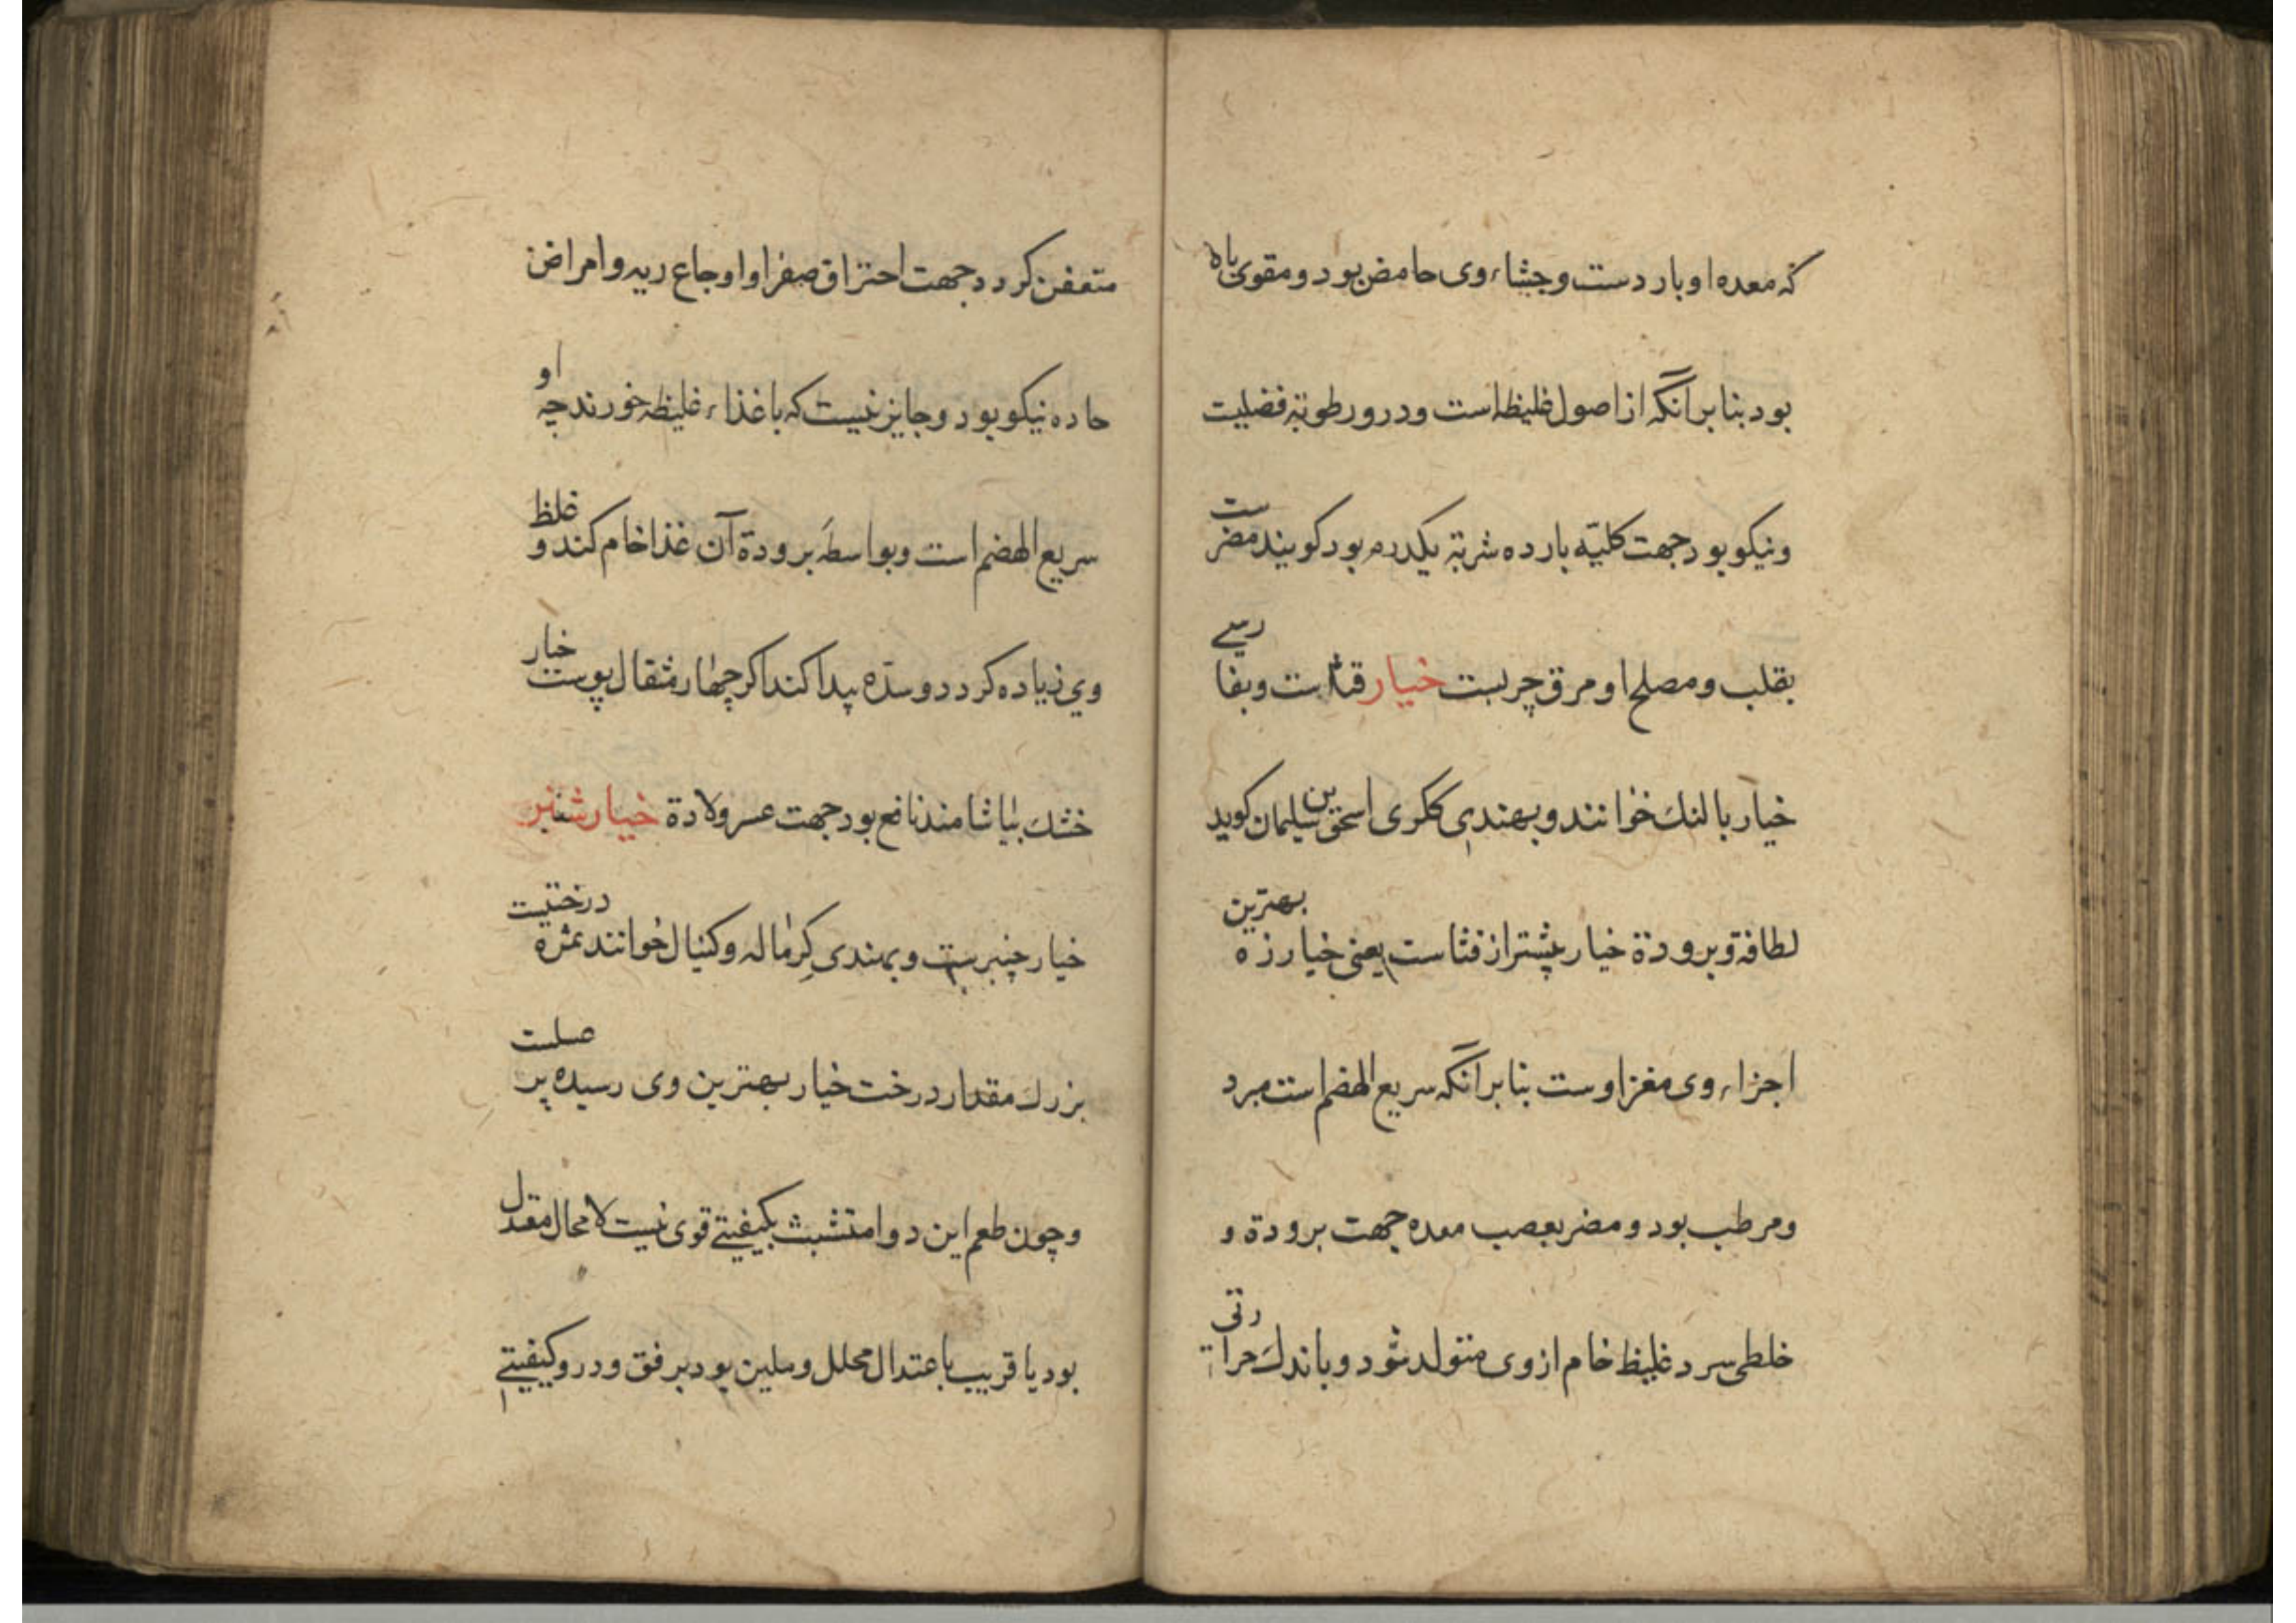 که معده او بار دست و جشاء وی حامض بود و مقوی باه
بود بنا بر آنکه از اصول غلیظه است و در و رطوبة فضلیت
و نیکو بود جهت کلیّه بارده شربة یکدرم بود کویند مضر ست
بقلب و مصلح او مرق چربست خیار قثا است و بفا رسی
خیار بالنك خوانند و بهندی ککری اسحق بن سلیمان کوید
لطافة و برودة خیار بیشتر از قثا است یعنی خیار زه بهترین
اجزاء وی مغز اوست بنا بر آنکه سریع الهضم است مبرد
و مرطب بود و مضر بعصب معده جهت برودة و
خلطی سرد غلیظ خام از وی متولد شود و باندك حرا رتی
متعفن کردد جهت احتراق صفرا و اوجاع ریه و امراض
حاده نیکو بود و جایز نیست که با غذاء غلیظه خورند چه او
سریع الهضم است و بواسطهٔ برودة آن غذا خام کند و غلظ
وی زیاده کردد و سدّه پیدا کند اکر چهار مثقال پوست خیار
خشك بیاشامند نافع بود جهت عسر ولادة خیار شنبر
خیار چنبر ست و بهندی کِرماله و کنیال خوانند ثمره درختیست
بزرك مقدار درخت خیار بهترین وی رسیده پر عسلست
و چون طعم این دوا متشبث بکیفیتی قوی نیست لا محال معتدل
بود یا قریب باعتدال محلل و ملین بود برفق و در و کیفیتی